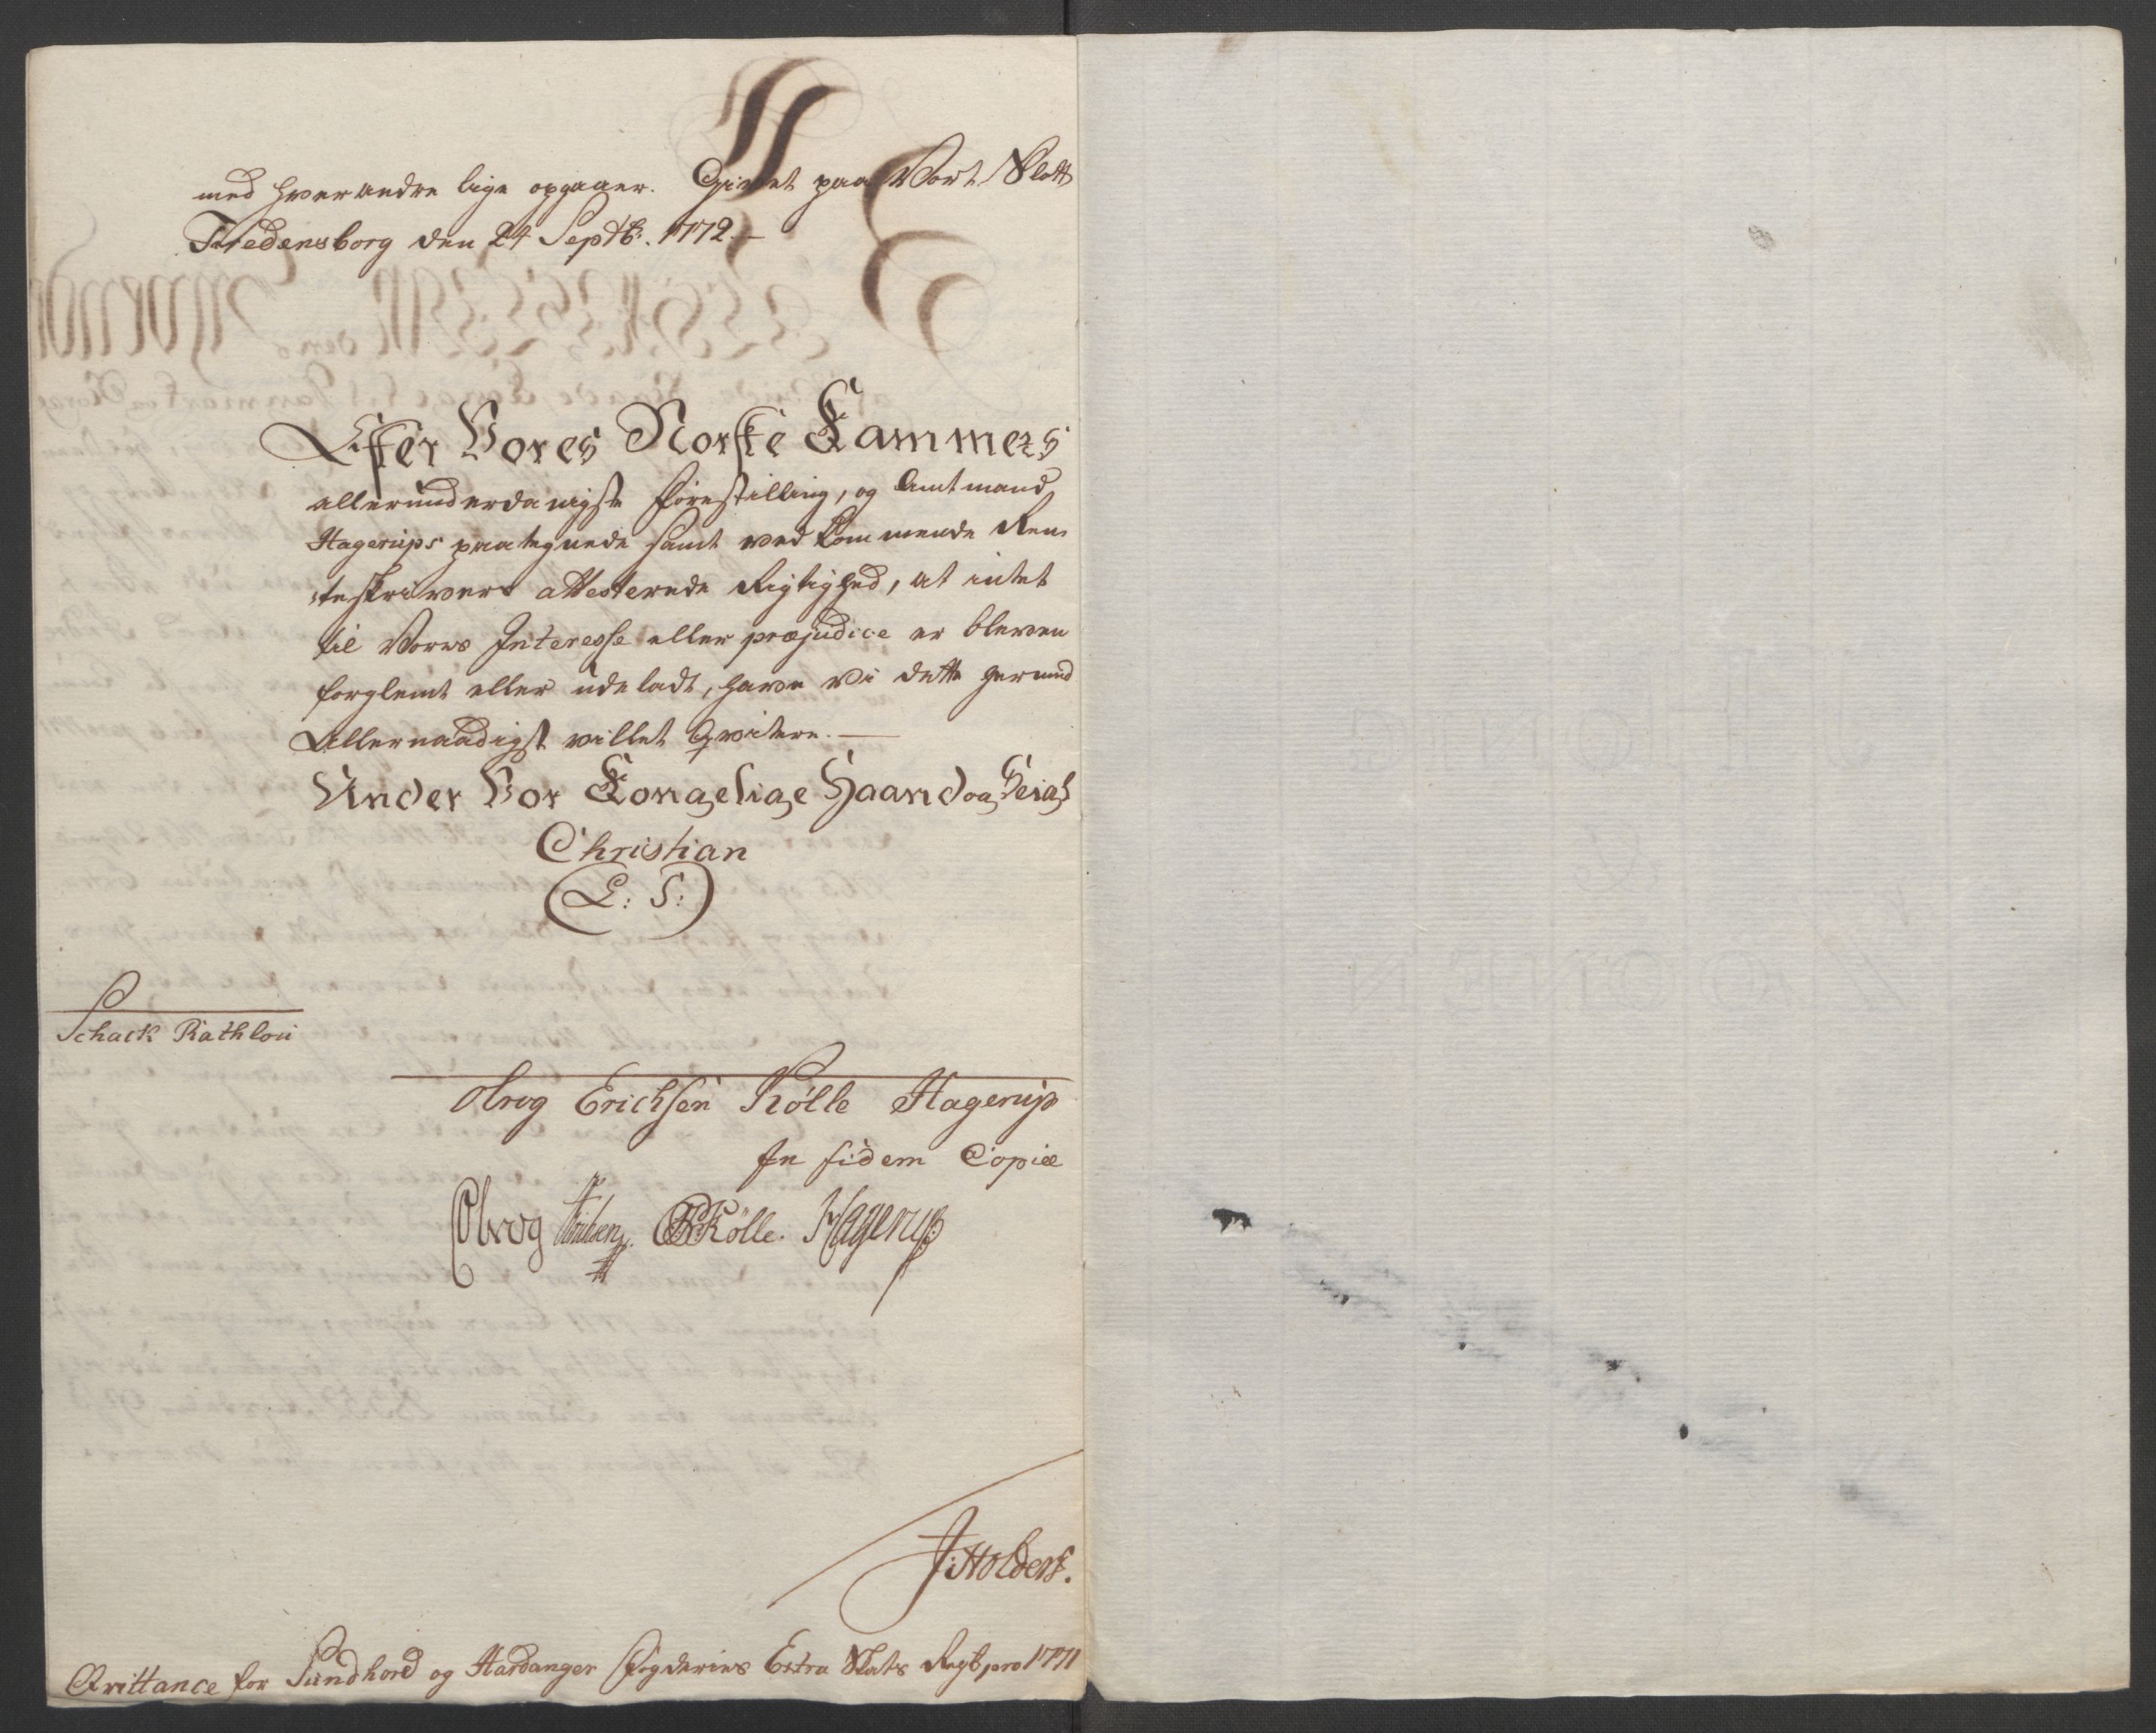 med hverandre lige opgaaer. Givet paa Vort Slott
Fredensborg den 24 Septb: 1772.—
Efter Vores Norske Kammers
allerunderdanigste forestilling, og Amtmand
Hagerups paategnede samt vedkommende Ren-
teskrivers attesterede Rigtighed, at intet
til Vores Interesse eller præjudice er bleven
forglemt eller udeladt, have vi dette herved
Allernaadigst villet Qvitere.—
Under Vor Kongelige Haand og Seigl
Christian
(L: S:)
Schack Rathlou
Obrog Erichsen Kölle Hagerup
In fidem Copiæ
Obrog Erichsen. Kölle. Hagerup
J: Holders.
Qvittance for Sundhord og Hardanger Fogderies Extra Skats Regsb pro 1771